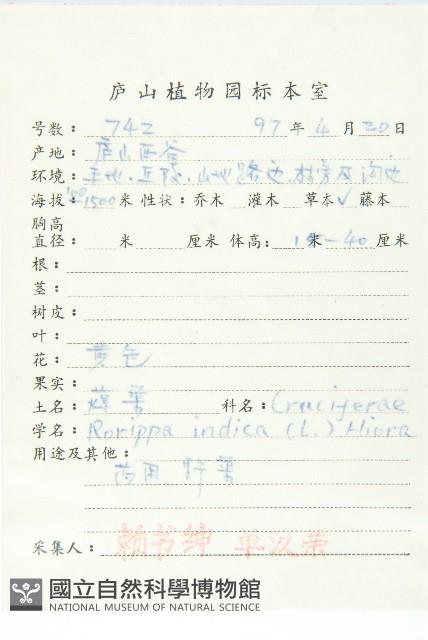 庐山植物园标本室
号数：742 97年4月20日
产地：庐山西谷
环境：山地路边
海拔：1500米 性状：乔木 灌木 草本✓ 藤本
胸高
直径： 米 厘米 体高：15米—40厘米
根：
茎：
树皮：
叶：
花：黄色
果实：
土名：蔊菜 科名：Cruciferae
学名：Rorippa indica (L.) Hiora
用途及其他：
药用 野菜
采集人：赖书绅 单汉荣
國立自然科學博物館
NATIONAL MUSEUM OF NATURAL SCIENCE